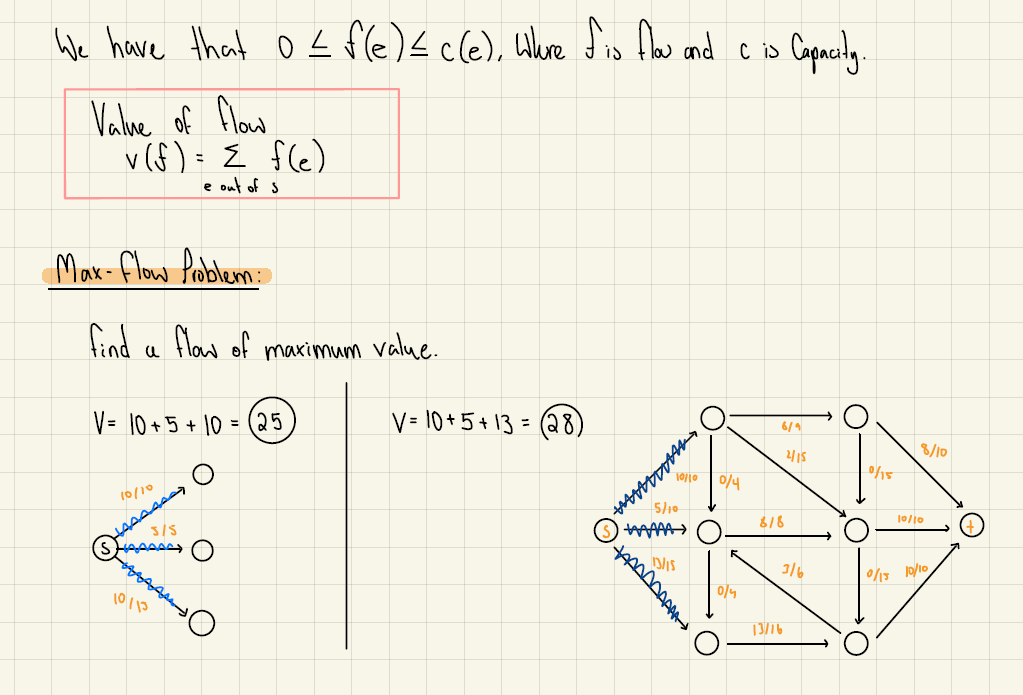 We have that 0 ≤ f(e) ≤ c(e), Where f is flow and c is Capacity.
Value of flow
v(f) = Σ f(e)
e out of s
Max-Flow Problem:
find a flow of maximum value.
V= 10+5+10 = 25
V= 10+5+13 = 28
10/10
5/5
S
10/13
6/9
8/10
2/15
10/10
0/4
0/15
5/10
8/8
10/10
S
t
13/15
3/6
0/15
10/10
0/4
13/16